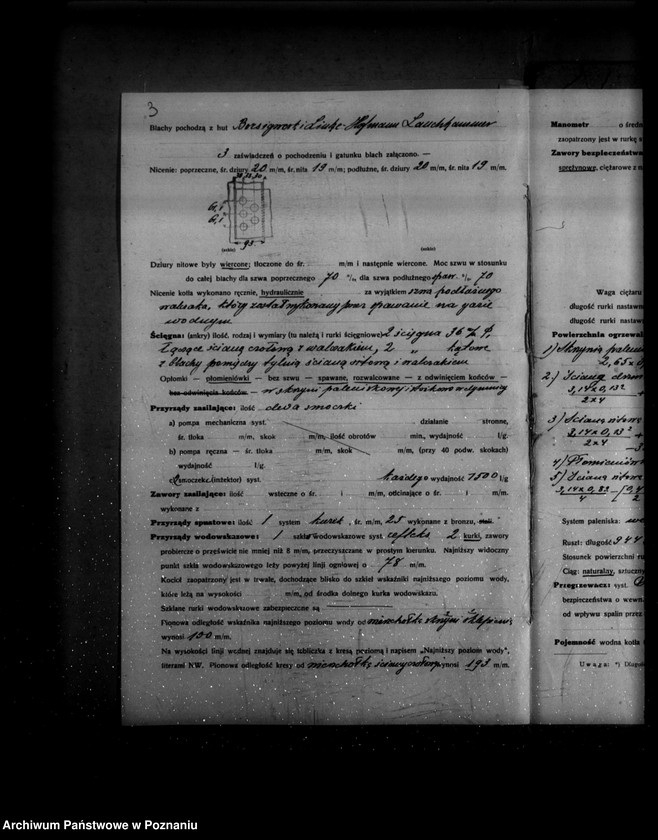 3
Blachy pochodzą z hut Borsigwerk i Linke-Hofmann Lauchhammer
3 zaświadczeń o pochodzeniu i gatunku blach załączono. —
Nicenie: poprzeczne, śr. dziury 20 m/m, śr. nita 19 m/m; podłużne, śr. dziury 20 m/m, śr. nita 19 m/m.
95
(szkic) (szkic)
Dziury nitowe były wiercone; tłoczone do śr. m/m i następnie wiercone. Moc szwu w stosunku
do całej blachy dla szwa poprzecznego 70 %, dla szwa podłużnego spaw. %, 70
Nicenie kotła wykonano ręcznie, hydraulicznie za wyjątkiem szwa podłużnego
walczaka, który został wykonany przez spawanie na gazie
wodnym
Ściągna: (ankry) ilość, rodzaj i wymiary (tu należą i rurki ściągniowe) 2 ścięgna 36
łączące ścianę czołową z walczakiem, 2 " kątowe
z blachy pomiędzy tylnią ścianą sitową i walczakiem
Opłomki — płomieniówki — bez szwu — spawane, rozwalcowane — z odwinięciem końców —
bez odwinięcia końców. — w skrzyni paleniskowej i dymnicy
Przyrządy zasilające: ilość dwa smoczki
a) pompa mechaniczna syst. działanie stronne,
śr. tłoka m/m, skok m/m, ilość obrotów min., wydajność l/g.
b) pompa ręczna — śr. tłoka m/m, skok m/m, (przy 40 podw. skokach)
wydajność l/g.
c) 2 smoczek. (inżektor) syst. każdego wydajność 1500 l/g
Zawory zasilające: ilość wsteczne o śr. m/m, otlcinające o śr. m/m,
wykonane z
Przyrządy spustowe: ilość 1 system kurek, śr. m/m, 25 wykonane z bronzu, stali.
Przyrządy wodowskazowe: 1 szkło wodowskazowe syst. 2 kurki, zawory
probiercze o prześwicie nie mniej niż 8 m/m, przeczyszczane w prostym kierunku. Najniższy widoczny
punkt szkła wodowskazowego leży powyżej linji ogniowej o 78 m/m.
Kocioł zaopatrzony jest w trwałe, dochodzące blisko do szkieł wskaźniki najniższego poziomu wody,
które leżą na wysokości m/m, od środka dolnego kurka wodowskazu.
Szklane rurki wodowskazowe zabezpieczone są
Pionowa odległość wskaźnika najniższego poziomu wody od wierzchołka
wynosi 100 m/m.
Na wysokości linji wodnej znajduje się tabliczka z kresą poziomą i napisem „Najniższy poziom wody",
literami NW. Pionowa odległość kresy od wierzchołka ściany wynosi 193 m/m.
Manometr o średn
zaopatrzony jest w rurkę z
Zawory bezpieczeństwa
sprężynowe, ciężarowe z n
Waga ciężaru
długość rurki nastaw
długość rurki nastaw
Powierzchnia ogrzewal
1) Skrzynia palenis
2,65 x 0,
2) Ściana drzw
3,14 x 0,13²
2 x 4
3) Ściana sitowa
3,14 x 0,13²
2 x 4
4) Płomieniówk
5) Ściana sitowa
4 2
System paleniska:
Ruszt: długość 944
Stosunek powierzchni ru
Ciąg: naturalny, sztuczny
Przegrzewacz: syst.
bezpieczeństwa o wewn.
od wpływu spalin przez
Pojemność wodna kotła
Uwaga: *) Długoś
Archiwum Państwowe w Poznaniu